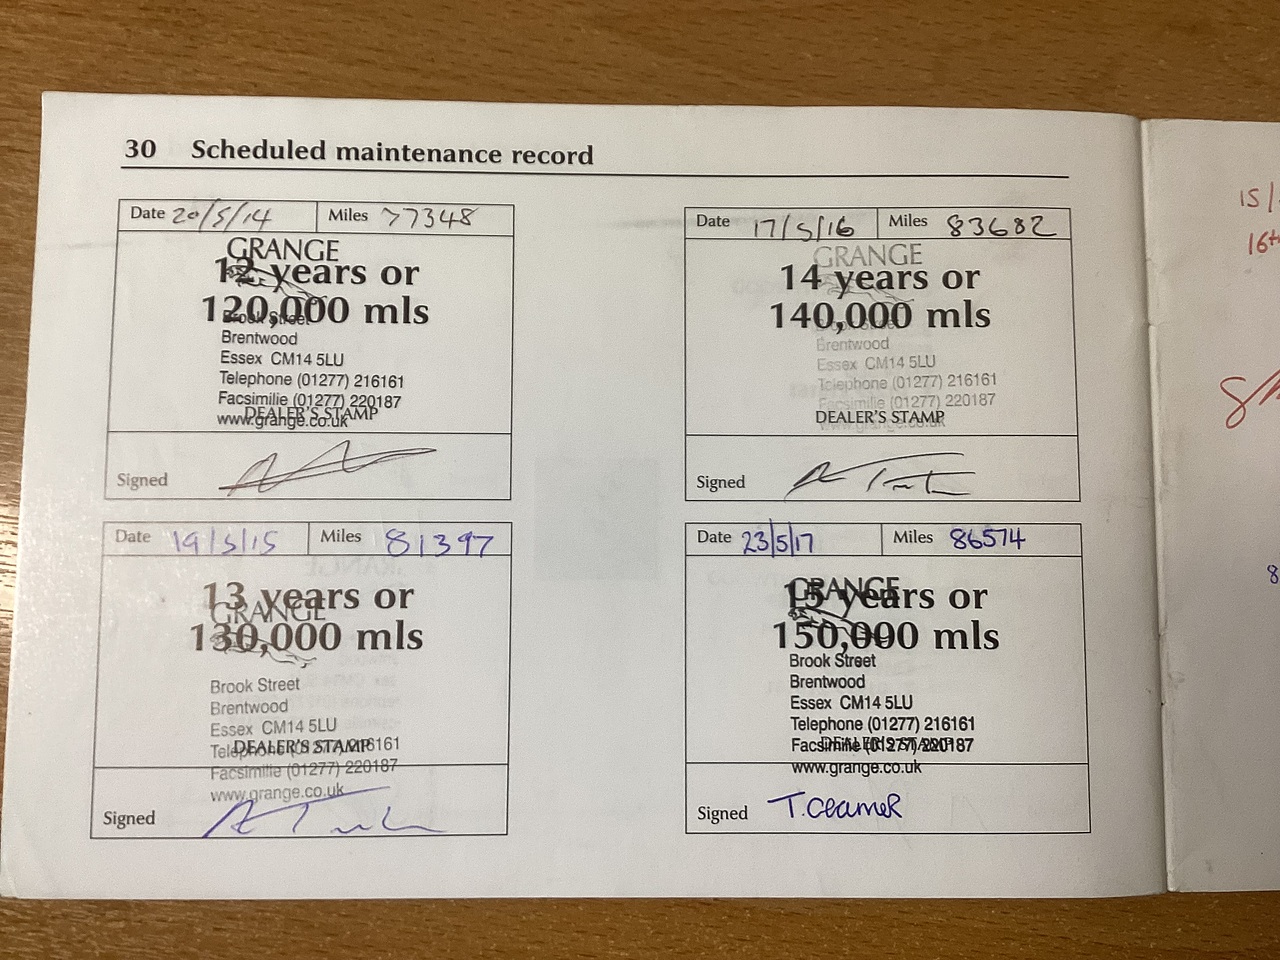 30 Scheduled maintenance record
Date 20/5/14 Miles 77348
GRANGE
12 years or
120,000 mls
Brook Street
Brentwood
Essex CM14 5LU
Telephone (01277) 216161
Facsimilie (01277) 220187
DEALER'S STAMP
www.grange.co.uk
Signed
Date 19/5/15 Miles 81397
13 years or
GRANGE
130,000 mls
Brook Street
Brentwood
Essex CM14 5LU
DEALER'S STAMP
Telephone (01277) 216161
Facsimilie (01277) 220187
www.grange.co.uk
Signed
Date 17/5/16 Miles 83682
GRANGE
14 years or
140,000 mls
Brook Street
Brentwood
Essex CM14 5LU
Telephone (01277) 216161
Facsimilie (01277) 220187
DEALER'S STAMP
www.grange.co.uk
Signed
Date 23/5/17 Miles 86574
GRANGE
15 years or
150,000 mls
Brook Street
Brentwood
Essex CM14 5LU
Telephone (01277) 216161
Facsimilie (01277) 220187
DEALER'S STAMP
www.grange.co.uk
Signed T. Cramer
15/
16th
8